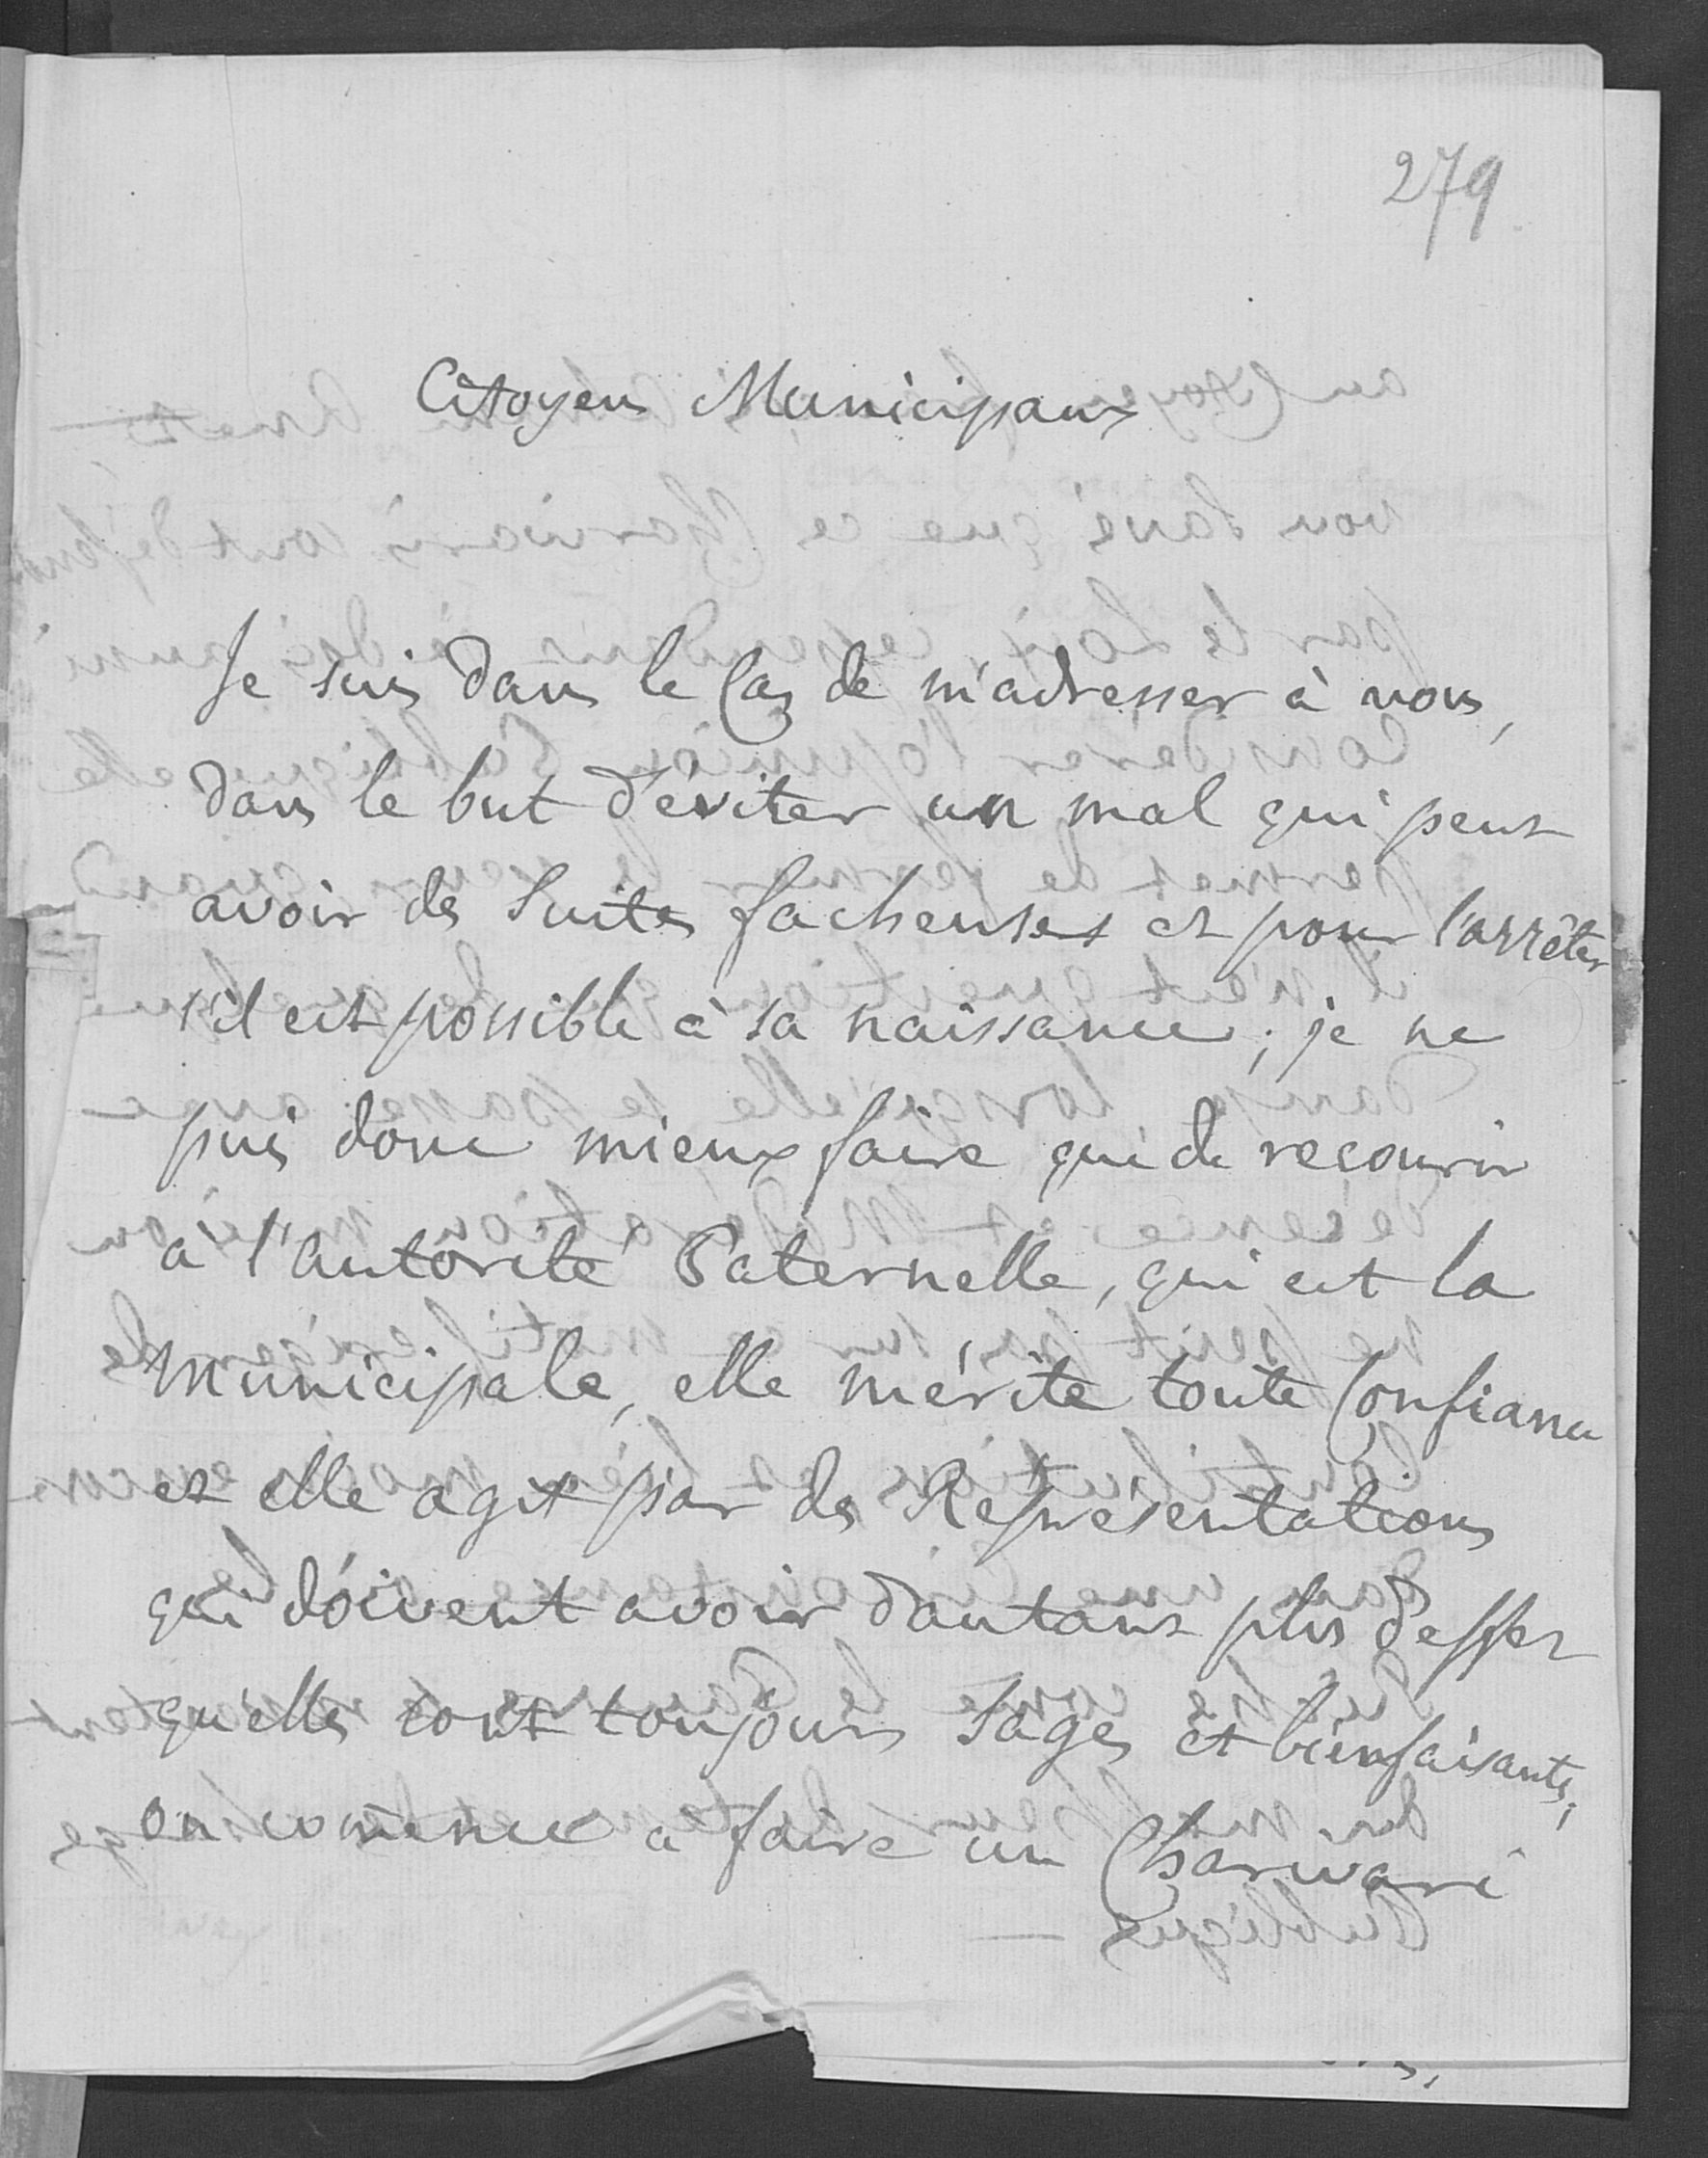 279
Citoyens Municipaux
Je suis dans le Cas de m'adresser à vous,
dans le but d'éviter un mal qui peut
avoir des Suites facheuses et pour l'arrêter
s'il est possible à sa naissance ; je ne
puis donc mieux faire que de recourir
a l'autorité Paternelle, qui est la
Municipale, elle mérite toute Confiance
et elle agit par des Représentations
qui doivent avoir dautant plus d'effet
qu'elles sont toujours Sages et bienfaisantes,
on comence a faire un Charivari